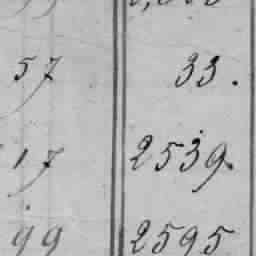 57 33.
17 2539.
99 2595